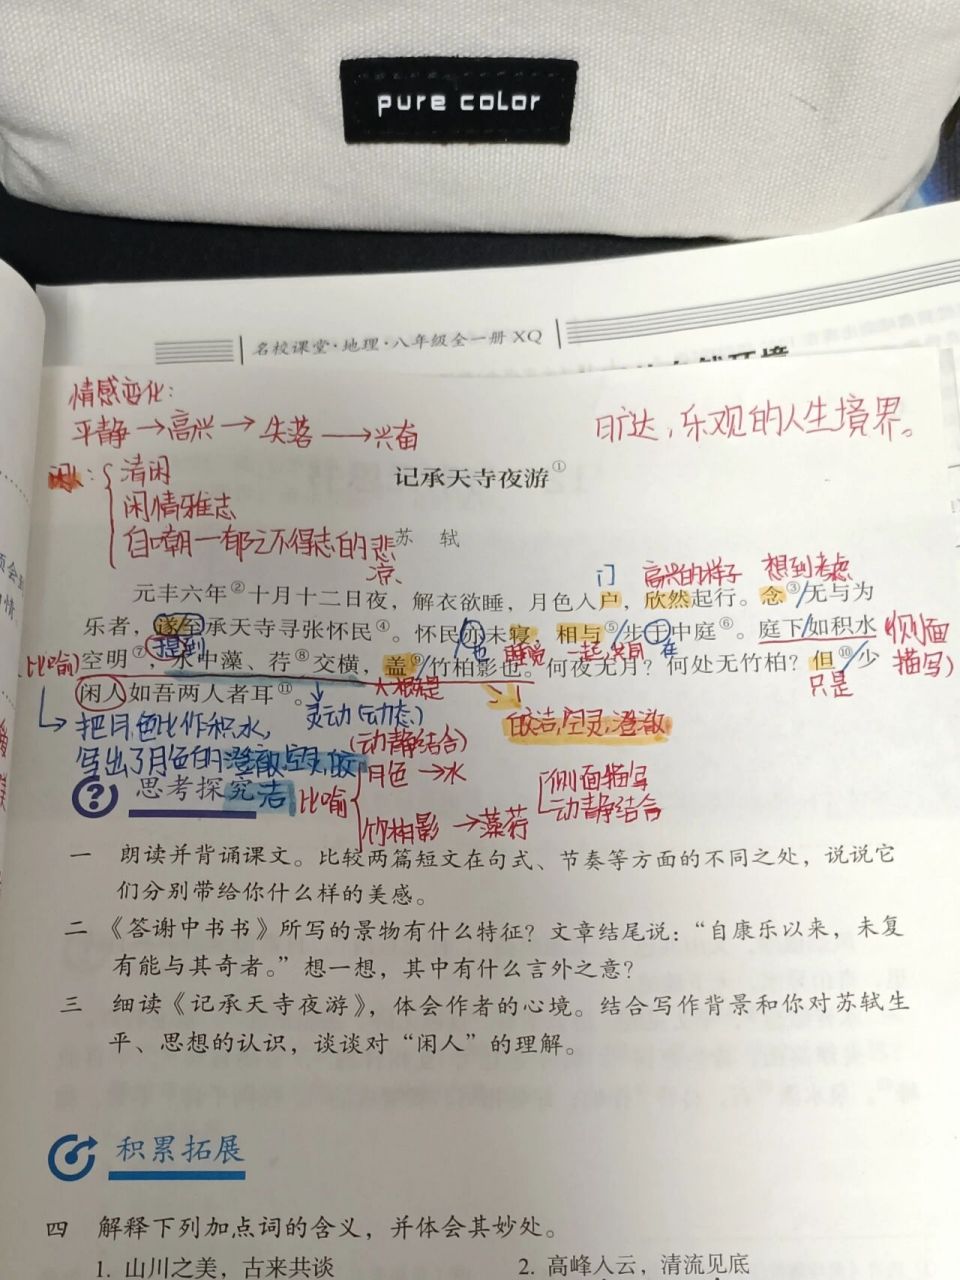 pure color
名校课堂·地理·八年级全一册 XQ
情感变化：
平静→高兴→失落→兴奋
旷达，乐观的人生境界。
闲人：
清闲
闲情雅志
自嘲—郁郁不得志的悲凉
记承天寺夜游①
苏 轼
门 高兴的样子 想到考虑
元丰六年②十月十二日夜，解衣欲睡，月色入户，欣然起行。念③/无与为
乐者，遂/至承天寺寻张怀民④。怀民/亦未寝，相与⑤/步于中庭⑥。庭下/如积水
想到 也 睡觉 一起，共同 在
(侧面描写)
(比喻)
空明⑦，水中藻、荇⑧交横，盖⑨/竹柏影也。何夜无月？何处无竹柏？但⑩/少
大概是 只是
闲人如吾两人者耳⑪。
灵动(动态)
皎洁，空灵，澄澈
把月色比作积水，
(动静结合)
写出了月色的澄澈，空灵，皎洁
思考探究
比喻
月色→水
竹柏影→藻荇
侧面描写
动静结合
一 朗读并背诵课文。比较两篇短文在句式、节奏等方面的不同之处，说说它
们分别带给你什么样的美感。
二 《答谢中书书》所写的景物有什么特征？文章结尾说：“自康乐以来，未复
有能与其奇者。”想一想，其中有什么言外之意？
三 细读《记承天寺夜游》，体会作者的心境。结合写作背景和你对苏轼生
平、思想的认识，谈谈对“闲人”的理解。
积累拓展
四 解释下列加点词的含义，并体会其妙处。
1. 山川之美，古来共谈
2. 高峰入云，清流见底